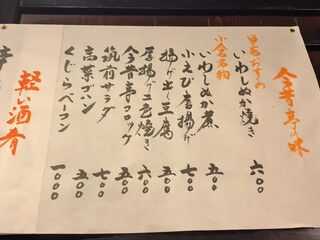 今昔亭の味
いわしぬか焼き 六〇〇
小倉名物
いわしぬか煮 五〇〇
小えび唐揚げ 七〇〇
揚げ出し豆腐 五〇〇
厚揚げ二色焼き 六〇〇
今昔亭コロッケ 五〇〇
筑前サラダ 七〇〇
高菜ゴハン 五〇〇
くじらベーコン 一〇〇〇
軽い酒肴